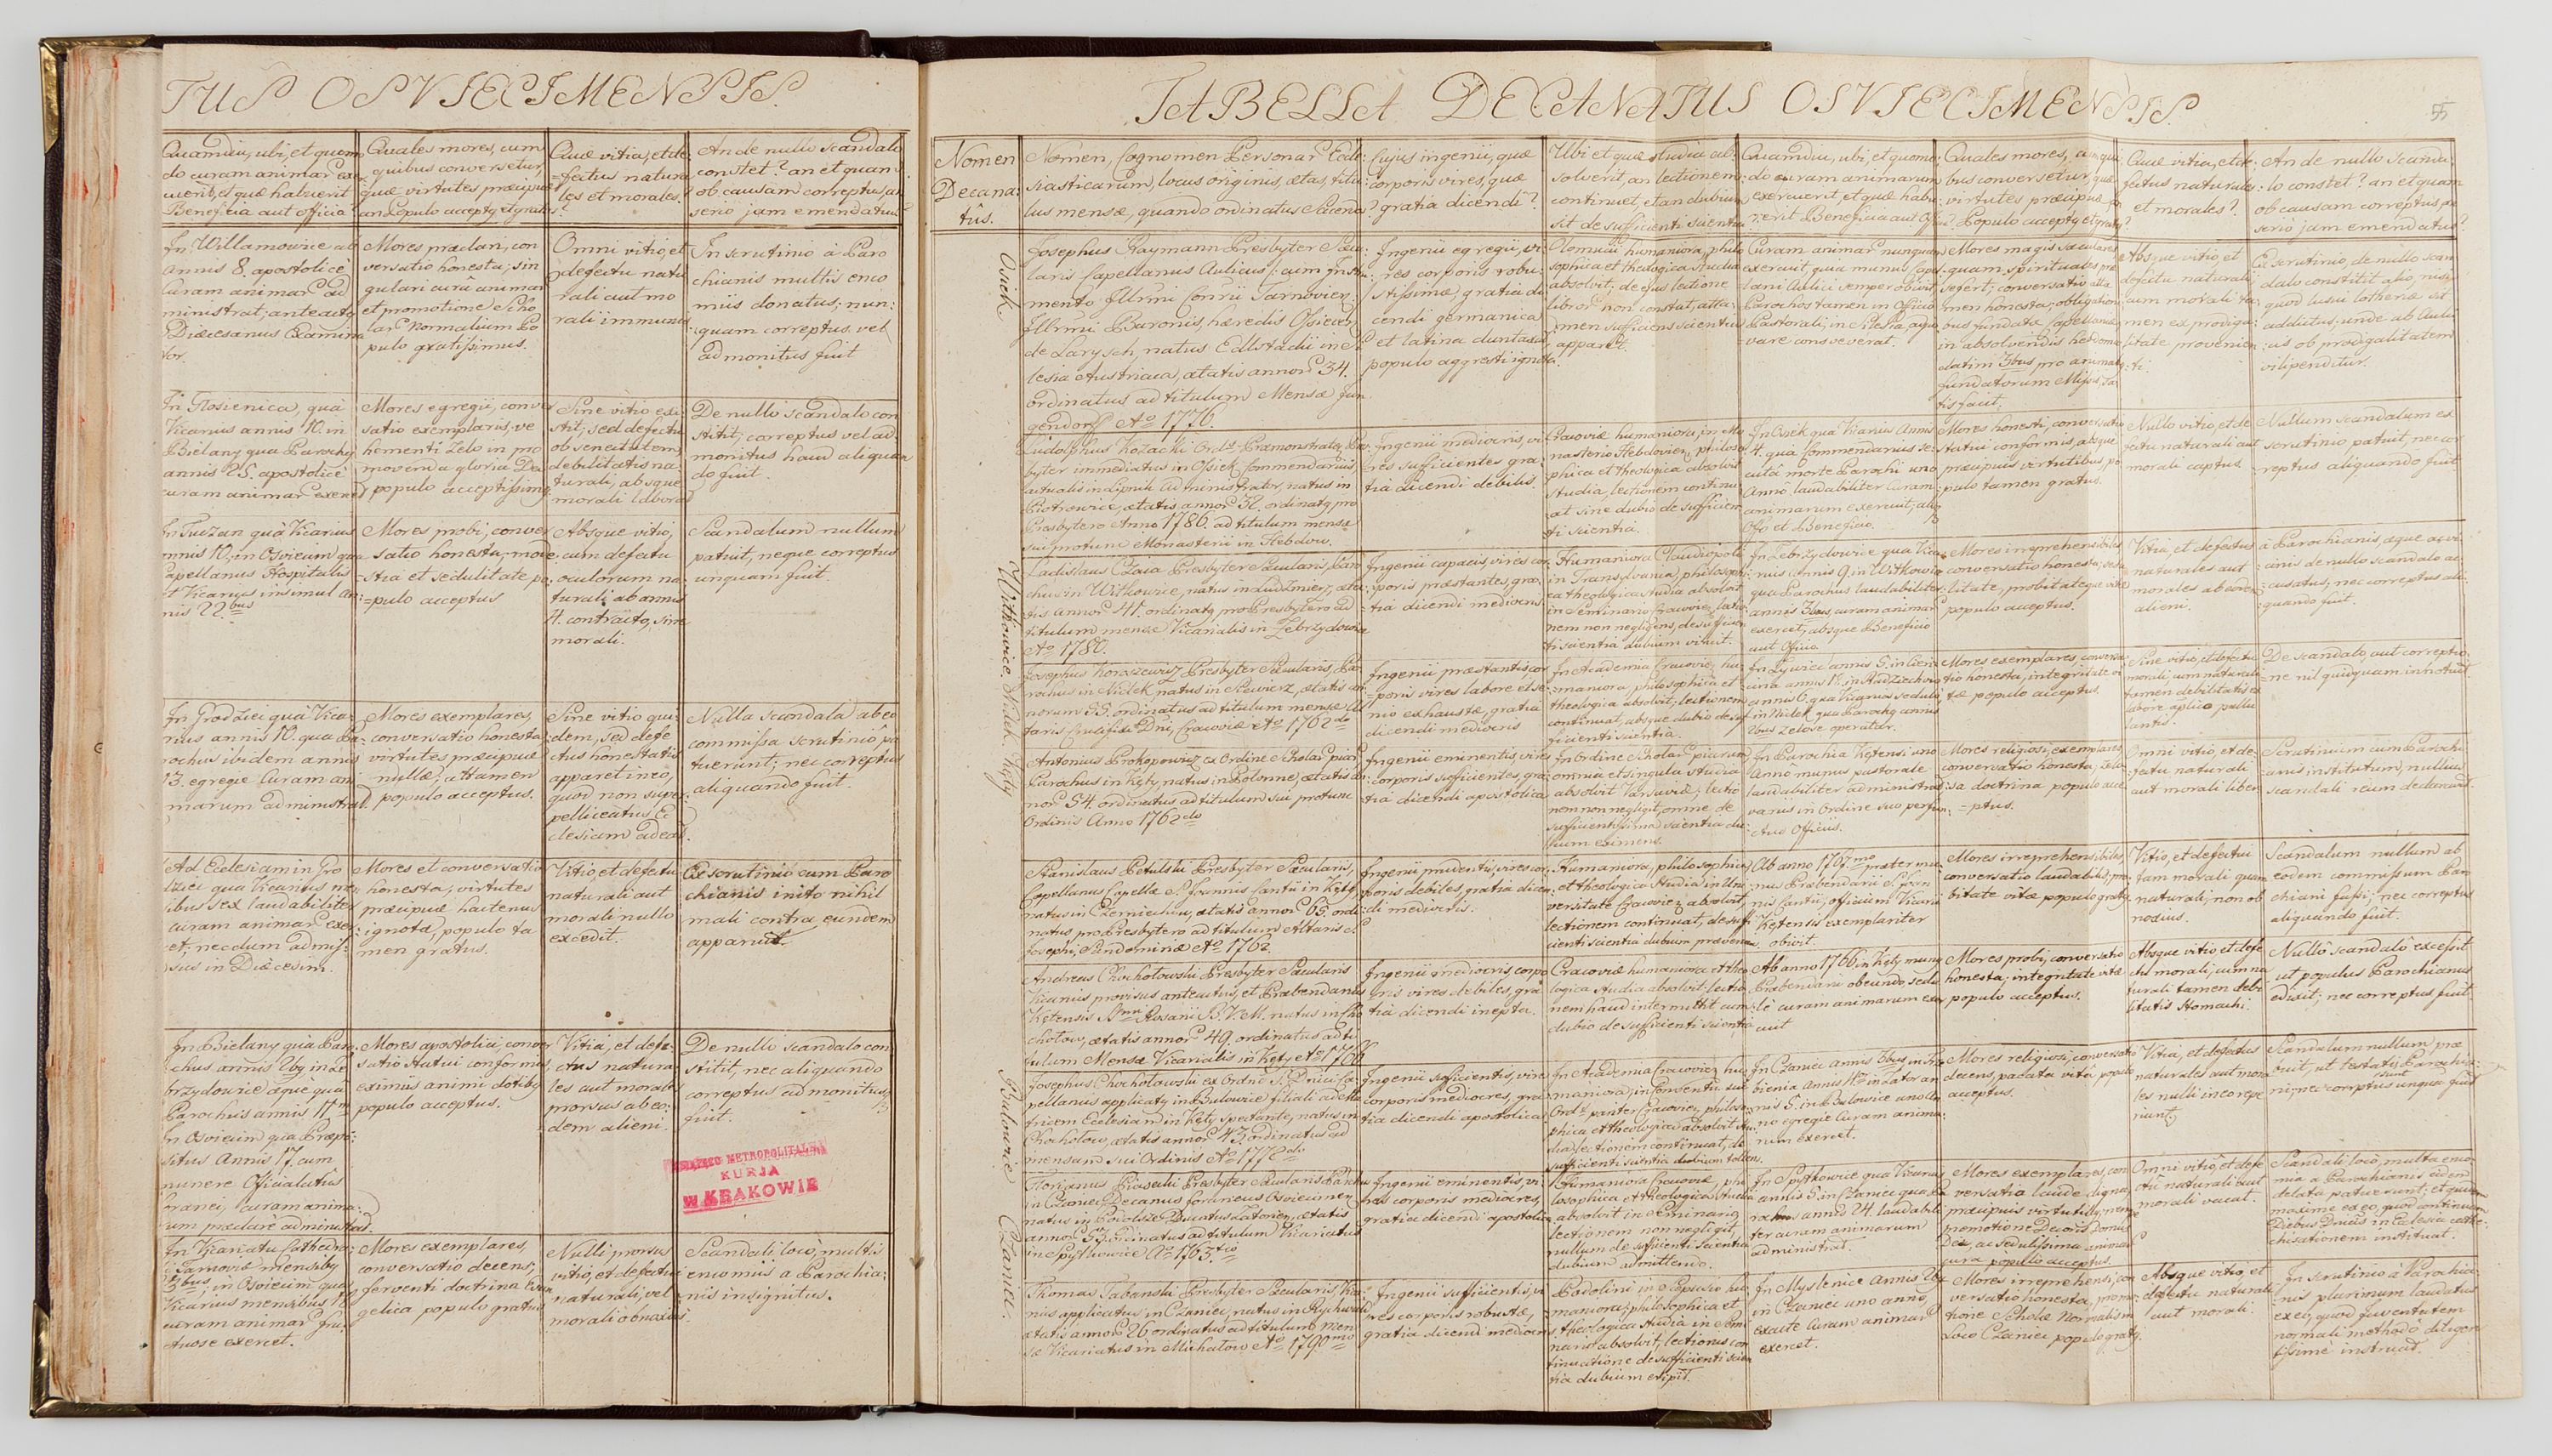 TUS OSVIECIMENSIS.
Quamdiu, ubi, et quomo
do curam animar exer
cuerit, et quæ habuerit
Beneficia aut officia
Quales mores, cum
quibus conversetur,
quæ virtutes præcipuæ
an Populo acceptq et gratq
Quæ vitia, et de
fectus natura
les et morales.
An de nullo scandalo
constet? an et quam
ob causam correptus, an
serio jam emendatus
In Willamowice ab
annis 8. apostolicè
curam animar ad
ministrat; anteactq
Diæcesanus Examina
tor.
Mores præclari, con
versatio honesta; sin
gulari curâ animar
et promotione Scho
lar Normalium Po
pulo gratissimus.
Omni vitio, et
defectu natu
rali aut mo
rali immunis
In scrutinio à Paro
chianis multis enco
miis donatus; nun:
quam correptus vel
admonitus fuit
In Glosienica, quà
Vicarius annis 10. in
Bielany qua Parochq
annis 25. apostolicè
curam animar exercet
Mores egregii, conver
satio exemplaris, ve
hementi Zelo in pro
movenda gloria Dei
populo acceptissimq
Sine vitio exi
stit; sed defectu
ob senectutem
debilitatis na
turali, absque
morali laborat
De nullo scandalo con
stitit; correptus vel ad
monitus haud aliquan
do fuit.
annis 10. in Osviecim qua
Capellanus Hospitalis
et Vicarius insimul an
nis 22bus
Mores probi, conver
satio honesta; mode
stia et sedulitate po
=pulo acceptus
Absque vitio,
cum defectu
oculorum na
turali ab annis
4. contracto, sine
morali.
Scandalum nullum
patuit, neque correptus
unquam fuit.
In Grodziec quà Vica
rius annis 10. qua Pa
rochus ibidem annis
13. egregie Curam ani
marum administrat.
Mores exemplares,
conversatio honesta
virtutes præcipuæ
nullæ; attamen
populo acceptus.
Sine vitio qui
dem, sed defe
ctus honestatis
apparet in eo,
quod non super
pelliceatus Ec
clesiam adeat.
Nulla scandala ab eo
commissa scrutinio pa
tuerunt; nec correptus
aliquando fuit.
Ad Ecclesiam in Gro
dziec qua Vicarius men
sibus sex laudabiliter
curam animar exer
cet; necdum admis
sus in Diæcesim.
Mores et conversatio
honesta; virtutes
præcipuæ hactenus
ignotæ, populo ta
men gratus.
Vitio, et defectu
naturali aut
morali nullo
excedit.
Ex scrutinio cum Paro
chianis inito nihil
mali contra eundem
apparuit.
In Bielany quà Paro
chus annis 2bq in Ze
brzydowice æquè qua
Parochus annis 11m
In Osviecim qua Præpo
situs Annis 17. cum
munere Officialatûs
foranei, curam anima:
rum præclarè administrat.
Mores apostolici; conver
satio statui conformis
eximiis animi dotibq
populo acceptus.
Vitia, et defe
ctus natura
les aut morales
prorsus ab eo:
dem alieni.
De nullo scandalo con
stitit, nec aliquando
correptus admonitus
fuit.
KSIĄŻĘCO METROPOLITALNA
KURJA
W KRAKOWIE
In Vicariatu Cathedra
Tarnoviæ mensibq
3bus, in Osviecim quà
Vicarius mensibus 18
curam animar fru
ctuose exercet.
Mores exemplares,
conversatio decens,
ferventi doctrina Evan
gelica populo gratus
Nulli prorsus
vitio, et defectui
naturali, vel
morali obnoxius.
Scandali loco, multis
encomiis a Parochia
nis insignitus.
TABELLA DECANATUS OSVIECIMENSIS.
55
Nomen
Decana:
tûs.
Nomen, Cognomen Personar Eccle
siasticarum, locus originis, ætas, titu
lus mensæ, quando ordinatus Sacerdos?
Cujus ingenii, quæ
corporis vires, quæ
gratia dicendi?
Ubi et quæ studia ab
solverit, an lectionem
continuet, et an dubium
sit de sufficienti scientia
Quamdiu, ubi, et quomo
do curam animarum
exercuerit, et quæ habu
erit Beneficia aut Offi
Quales mores, cum qui
bus conversetur, quæ
virtutes præcipuæ
Populo acceptq et gratq
Quæ vitia, et de
fectus naturales
et morales?
An de nullo scanda
lo constet? an et quam
ob causam correptus, an
serio jam emendatus?
Osiek
Josephus Haymann Presbyter Sæcu
laris Capellanus Aulicus cum Instru
mento Illrmi Conrii Tarnovien.
Illrmi Baronis, hæredis Osiecen
de Larysch, natus Edlstadii in Si
lesia Austriaca, ætatis annor 34.
ordinatus ad titulum Mensæ fun
gendor Ao 1776.
Ingenii egregii, vi
res corporis robu
stissimæ, gratia di
cendi germanica
et latina duntaxat
populo aggresti ignota.
Olomucii humaniora, philo
sophica et theologica studia
absolvit; de ejus lectione
libror non constat, atta
men sufficiens scientia
apparet.
Curam animar nunquam
exercuit, quia munus Cape
lani Aulici semper obivit
Parochos tamen in Officio
Pastorali, in Silesia, adju
vare consueverat.
Mores magis sæculares
quam spirituales præ
sefert; conversatio atta
men honesta; obligatio
nibus fundatæ Capellaniæ
in absolvendis hebdoma
datim 3bus pro animabq
fundatorum Missis, sa
tisfacit.
Absque vitio, et
defectu naturali
cum morali ta
men ex prodiga
litate provenien
ti.
Ex scrutinio, de nullo scan
dalo constitit alio, nisi
quod lusui lotheriæ sit
addictus; unde ab Auli
cis ob prodigalitatem
vilipenditur.
Ludolphus Kozacki Ordis Præmonstraten Pres
byter immediatus in Osiek Commendarius
actualis in Lipnik Administrator, natus in
Piotrowice, ætatis annor 32. ordinatq pro
Presbytero Anno 1786. ad titulum mensæ
sui protunc Monasterii in Hebdow.
Ingenii mediocris, vi
res sufficientes gra
tia dicendi debilis.
Cracoviæ humaniora, in Mo
nasterio Hebdovien philoso
phica et theologica absolvit
studia, lectionem continu
at sine dubio de sufficien
ti scientia.
In Osiek quà Vicarius Annis
4. qua Commendarius se
cutâ morte Parochi uno
Annô laudabiliter Curam
animarum exercuit, absq
Offo et Beneficio.
Mores honesti, conversatio
statui conformis, absque
præcipuis virtutibus, po
pulo tamen gratus.
Nullo vitio, et de
fectu naturali aut
morali captus.
Nullum scandalum ex
scrutinio patuit, nec cor
reptus aliquando fuit.
Witkowice
Ladislaus Czaia Presbyter Sæcularis, Paro
chus in Witkowice, natus in Ludzmierz, æta
tis annor 41. ordinatq pro Presbytero ad
titulum mensæ Vicarialis in Zebrzydowice
Ao 1780.
Ingenii capacis, vires cor
poris præstantes, gra
tia dicendi mediocris.
Humaniora Claudiopoli
in Transylvania, philosophi
ca et theologica studia absolvit
in Seminario Cracovien, lectio
nem non negligens, de suffici
ti scientia dubium vitavit.
In Zebrzydowice qua Vica
rius annis 9. in Witkowice
qua Parochus laudabiliter
annis 3bus, curam animar
exercet, absque Beneficio
aut Officio.
Mores irreprehensibiles
conversatio honesta; sedu
litate, probitateque vitæ
populo acceptus.
Vitia, et defectus
naturales aut
morales ab eodem
alieni.
à Parochianis, æque ac vi
cinis de nullo scandalo ac
cusatus, nec correptus ali
quando fuit.
Nidek
Josephus Honiszewicz Presbyter Sæcularis, Pa
rochus in Nidek, natus in Skawicz, ætatis an
norum 55. ordinatus ad titulum mensæ Al
taris Crucifixi Dni, Cracoviæ Ao 1762do
Ingenii præstantis, cor
poris vires labore et se
nio exhaustæ, gratia
dicendi mediocris
In Academia Cracovien hu
maniora, philosophica et
theologica absolvit; lectionem
continuat, absque dubio de suf
ficienti scientia.
In Zywiec annis 5. in Cięci
na annis 18. in Rudziechovi
annis 6. qua Vicarius sedulo
in Nidek qua Parochq annis
2bus Zelose operatur.
Mores exemplares, conversa
tio honesta, integritate vi
tæ populo acceptus.
Sine vitio, et defectu
morali, cum naturali
tamen debilitatis ex
labore
De scandalo, aut correptio
ne nil quidquam innotuit.
Kęty
Antonius Prokopowicz ex Ordine Scholar piar
Parochus in Kęty, natus in Polonne, ætatis an
nor 54. ordinatus ad titulum sui protunc
Ordinis Anno 1762do
Ingenii eminentis, vires
corporis sufficientes, gra
tia dicendi apostolica
In Ordine Scholar piarum
omnia et singula studia
absolvit Varsaviæ; lectio
nem non negligit, omne de
sufficientissima scientia du
bium eximens.
In Parochia Kętensi uno
Anno munus pastorale
laudabiliter administrat;
variis in Ordine suo perfun
ctus Officiis.
Mores religiosi, exemplares
conversatio honesta; Zelo
sa doctrina populo acce
=ptus.
Omni vitio, et de
fectu naturali
aut morali liber
Scrutinium cum Parochi
anis institutum, nullius
scandali reum declaravit.
Stanislaus Petulski Presbyter Sæcularis,
Capellanus Capellæ S. Joannis Cantii in Kęty,
natus in Czernichow, ætatis annor 65. ordi
natus pro Presbytero ad titulum Altaris S.
Josephi, Sandomiriæ Ao 1762.
Ingenii prudentis, vires cor
poris debiles, gratia dicen
di mediocris.
Humaniora, philosophica
et theologica studia in Uni
versitate Cracovien absolvit,
lectionem continuat, de suffi
cienti scientia dubium præveni
Ab anno 1767mo præter mu
nus Præbendarii S. Joan
nis Cantii, officium Vicarii
Kętensis exemplariter
obivit.
Mores irreprehensibiles,
conversatio laudabilis, pro
bitate vitæ populo gratq
Vitio, et defectui
tam morali quam
naturali, non ob
noxius.
Scandalum nullum ab
eodem commissum Paro
chiani fassi; nec correptus
aliquando fuit.
Andreas Chochotowski Presbyter Sæcularis
Vicarius provisus anteactus, et Præbendarius
Kętensis Ssmi Rosarii B.V.M. natus in Cho
chotow, ætatis annor 49. ordinatus ad ti
tulum Mensæ Vicarialis in Kęty Ao 1766
Ingenii mediocris, corpo
ris vires debiles, gra
tia dicendi inepta.
Cracoviæ humaniora et theo
logica studia absolvit; lectio
nem haud intermittit cum
dubio de sufficienti scientia
Ab anno 1766 in Kęty munq
Præbendarii obeundo, sedu
lè curam animarum exer
cuit
Mores probi, conversatio
honesta; integritate vitæ
populo acceptus.
Absque vitio et defe
ctu morali, cum na
turali tamen debi
litatis stomachi.
Nullô scandalô excessit
ut populus Parochianus
edixit; nec correptus fuit
Bulowice
Josephus Chochotowski ex Ordne S. Dnici Ca
pellanus applicatq in Bulowice filiali ad Ma
tricem Ecclesiam in Kęty spectante, natus in
Chochotow, ætatis annor 43. ordinatus ad
mensam sui Ordinis Ao 1772do
Ingenii sufficientis, vires
corporis mediocres, gra
tia dicendi apostolica
In Academia Cracovien hu
maniora, in Conventu sui
Ordis pariter Cracovien, philoso
phica et theologica absolvit stu
dia, lectionem continuat, de
sufficienti scientia dubium tollens.
In Czaniec annis 3bus in Trze
bienia annis 11m in Zator an
nis 5. in Bulowice uno An
no egregie Curam anima
rum exercet.
Mores religiosi, conversatio
decens, pacata vitâ populo
acceptus.
Vitia, et defectus
naturales aut mora
les nulli in eo repe
riunt
Scandalum nullum præ
buit, ut testati sunt Parochia
ni; nec correptus unquam fuit
Czaniec.
Florianus Piasecki Presbyter Sæcularis Parochus
in Czaniec, Decanus foraneus Osviecimen
natus in Podolsze Ducatus Zatorien, ætatis
annor 53. ordinatus ad titulum Vicariatus
in Spytkowice Ao 1763tio
Ingenii eminentis, vi
res corporis mediocres,
gratia dicendi apostolica
Humaniora Cracoviæ, phi
losophica et theologica studia
absolvit in Seminario,
lectionem non negligit,
nullum de sufficienti scientia
dubium admittendo.
In Spytkowice qua Vicarius
annis 5. in Czaniec qua Pa
rochus annis 24. laudabili
ter curam animarum
administrat.
Mores exemplares, con
versatio laude digna,
præcipuis virtutibq, nem
promotione Decoris Domus
Dei, ac sedulissima animar
cura populo acceptus.
Omni vitiô, et defe
ctu naturali aut
morali vacat.
Scandali locô, multa enco
mia a Parochianis
delata patuerunt; et quidem
maxime ex eo, quod continuam
Diebus Dnicis in Ecclesia cathe
chisationem instituat.
Thomas Tabanski Presbyter Sæcularis, Vica
rius applicatus in Czaniec, natus in Rychwald
ætatis annor 26. ordinatus ad titulum Men
sæ Vicariatus in Michatow Ao 1790mo
Ingenii sufficientis, vi
res corporis robustæ,
gratia dicendi mediocris
Podolini in Scepusio hu
maniora; philosophica et
theologica studia in Semi
nario absolvit, lectionis con
tinuatione de sufficienti scien
tia dubium eripit.
In Myslenice Annis 2bq
in Czaniec uno anno
exacte Curam animar
exercet.
Mores irreprehensi, con
versatio honesta, promo
tione Scholæ Normalis in
Loco Czaniec populo gratq.
Absque vitio, et
defectu naturali
aut morali
In scrutinio à Parochia
nis plurimum laudatus
ex eo, quod juventutem
normali methodo diligen
tissime instruat.